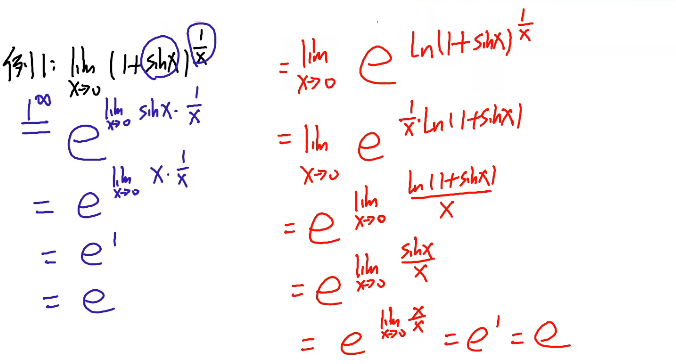 例1: lim x→0 (1+sinx)^(1/x)
1^∞ = e^(lim x→0 sinx · 1/x)
= e^(lim x→0 x · 1/x)
= e^1
= e
= lim x→0 e^(ln(1+sinx)^(1/x))
= lim x→0 e^(1/x · ln(1+sinx))
= e^(lim x→0 ln(1+sinx)/x)
= e^(lim x→0 sinx/x)
= e^(lim x→0 x/x) = e^1 = e